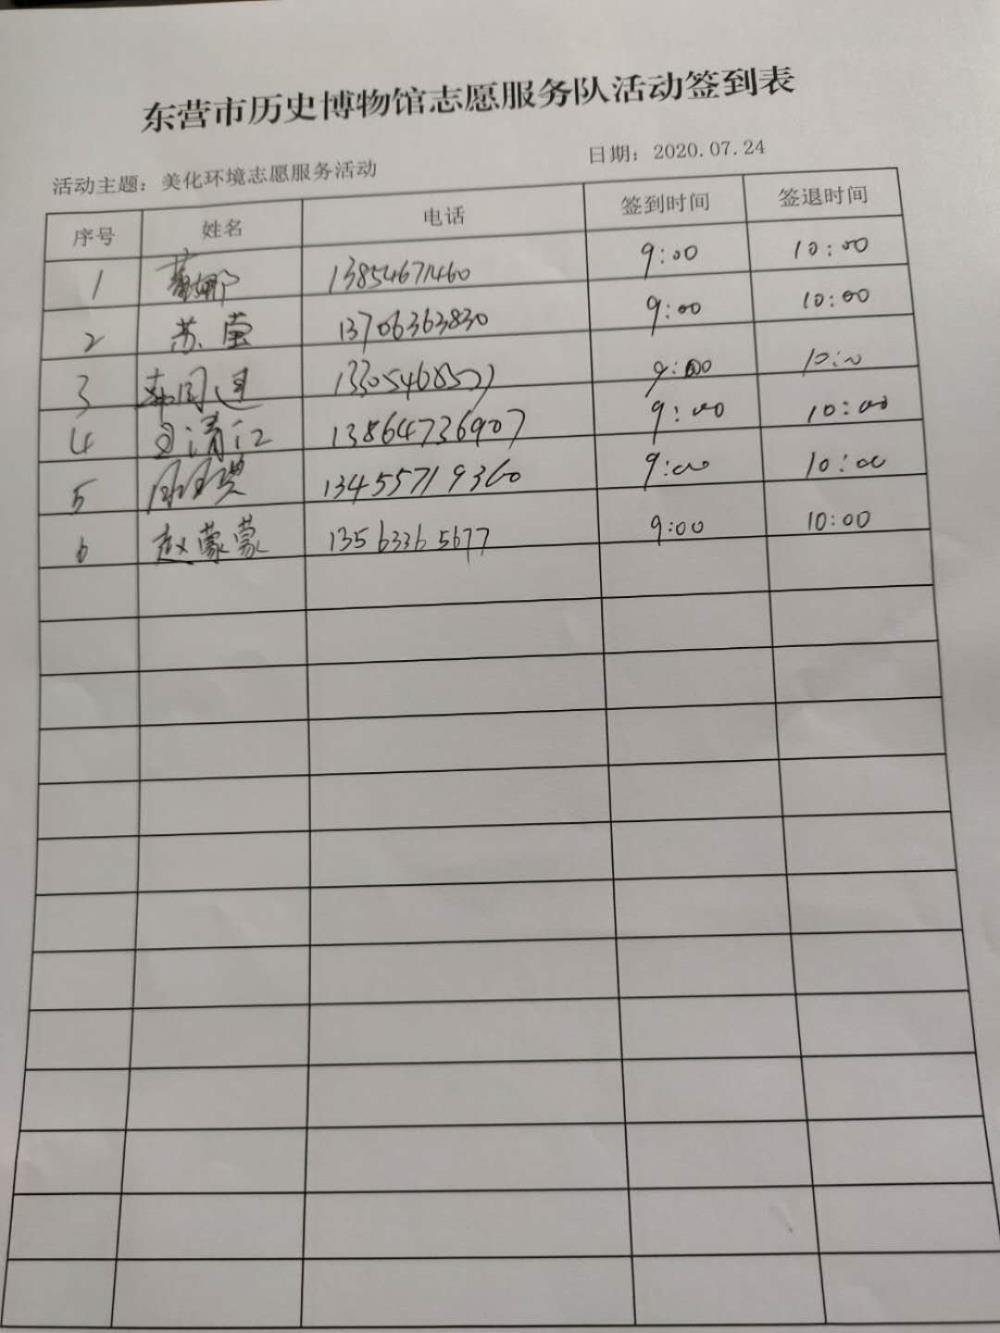 东营市历史博物馆志愿服务队活动签到表
活动主题：美化环境志愿服务活动 日期：2020.07.24
序号 姓名 电话 签到时间 签退时间
1 13854671460 9:00 10:00
2 苏莹 13706363830 9:00 10:00
3 9:00 10:00
4 王清江 13864736907 9:00 10:00
5 13455719360 9:00 10:00
6 赵蒙蒙 13563365677 9:00 10:00